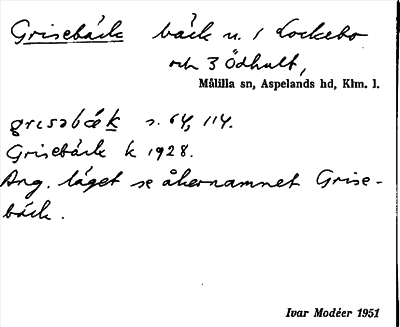 Grisebäck bäck u. 1 Lockebo
och 3 Ödhult,
Målilla sn, Aspelands hd, Klm. l.
grɩsəbæk s. 64, 114.
Grisebäck k 1928.
Ang. läget se åkernamnet Grise-
bäck.
Ivar Modéer 1951